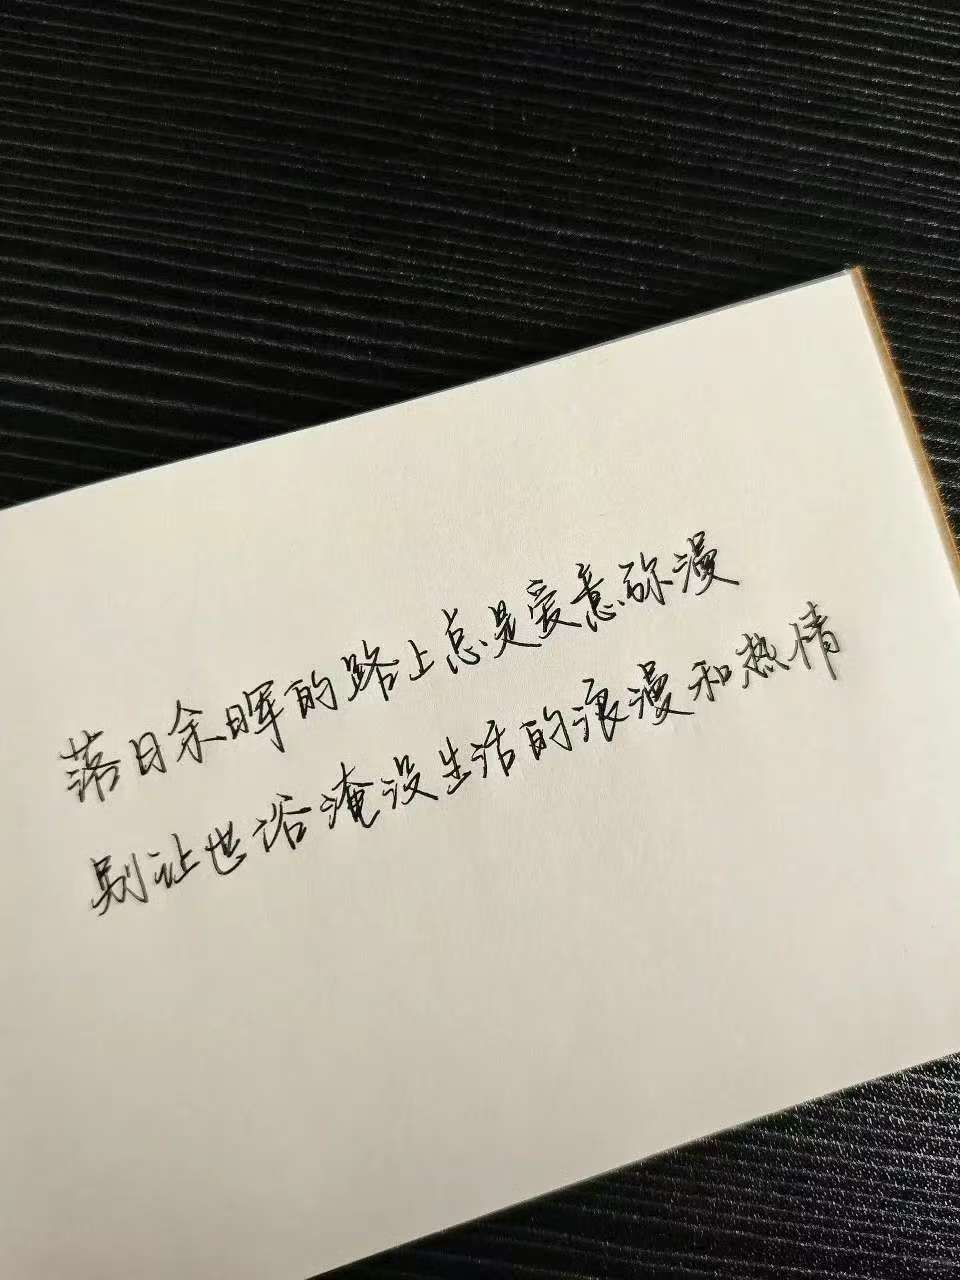 落日余晖的路上总是爱意弥漫
别让世俗淹没生活的浪漫和热情